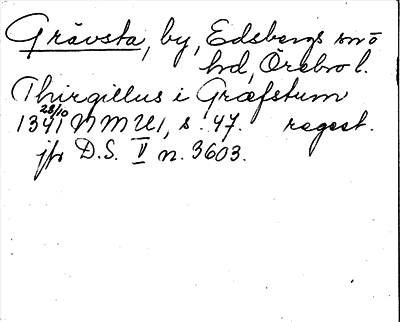 Grävsta, by, Edsbergs snö
hd, Örebro l.
Thirgillus i Græfstum
28/10
1341 NMU1, s. 47. regest.
jfr D.S. V n. 3603.